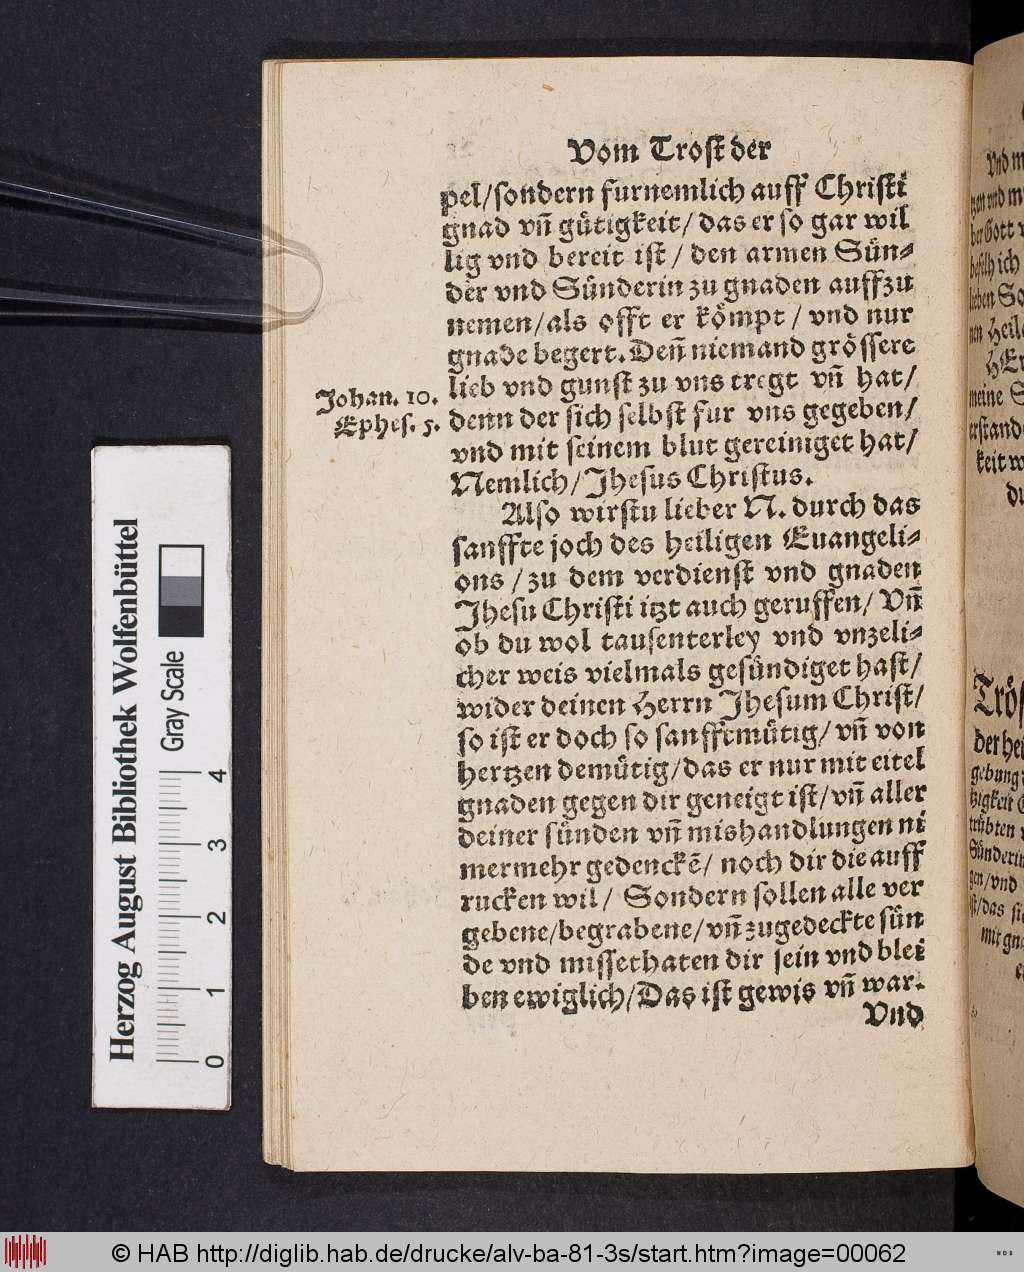 Vom Trost der
pel/sondern furnemlich auff Christi
gnad vñ gütigkeit/ das er so gar wil
lig vnd bereit ist / den armen Sün-
der vnd Sünderin zu gnaden auffzu
nemen/als offt er kömpt / vnd nur
gnade begert. Deñ niemand grössere
lieb vnd gunst zu vns tregt vñ hat/
denn der sich selbst fur vns gegeben/
vnd mit seinem blut gereiniget hat/
Nemlich/Jhesus Christus.
Johan. 10.
Ephes. 5.
Also wirstu lieber N. durch das
sanffte joch des heiligen Euangeli-
ons / zu dem verdienst vnd gnaden
Jhesu Christi itzt auch geruffen/ Vñ
ob du wol tausenterley vnd vnzeli-
cher weis vielmals gesündiget hast/
wider deinen Herrn Jhesum Christ/
so ist er doch so sanfftmütig/ vñ von
hertzen demütig/das er nur mit eitel
gnaden gegen dir geneigt ist/vñ aller
deiner sünden vñ mishandlungen ni
mermehr gedenckẽ/ noch dir die auff
rucken wil/ Sondern sollen alle ver
gebene/begrabene/vñ zugedeckte sün
de vnd missethaten dir sein vnd blei
ben ewiglich/Das ist gewis vñ war.
Vnd
Herzog August Bibliothek Wolfenbüttel
Gray Scale
0 1 2 3 4
© HAB http://diglib.hab.de/drucke/alv-ba-81-3s/start.htm?image=00062